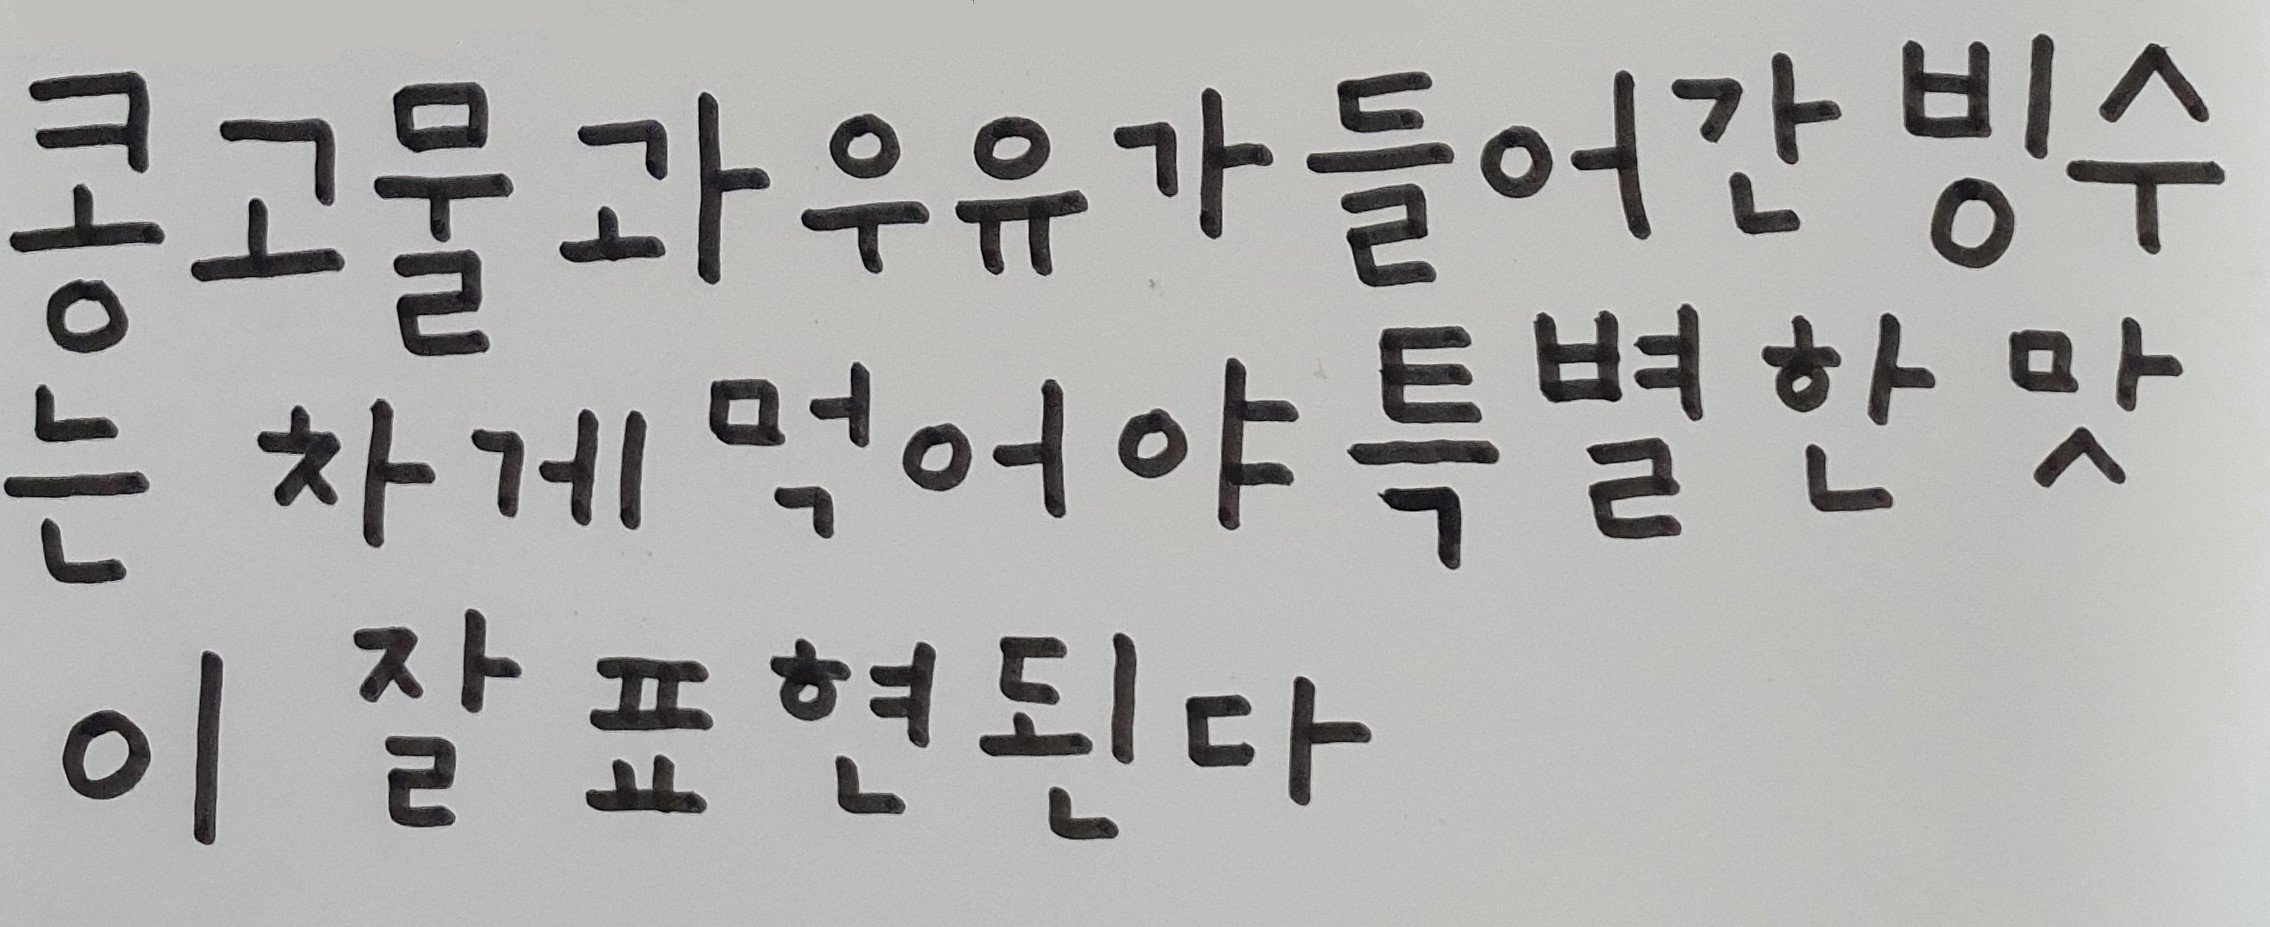 콩고물과 우유가 들어간 빙수
는 차게 먹어야 특별한 맛
이 잘 표현된다